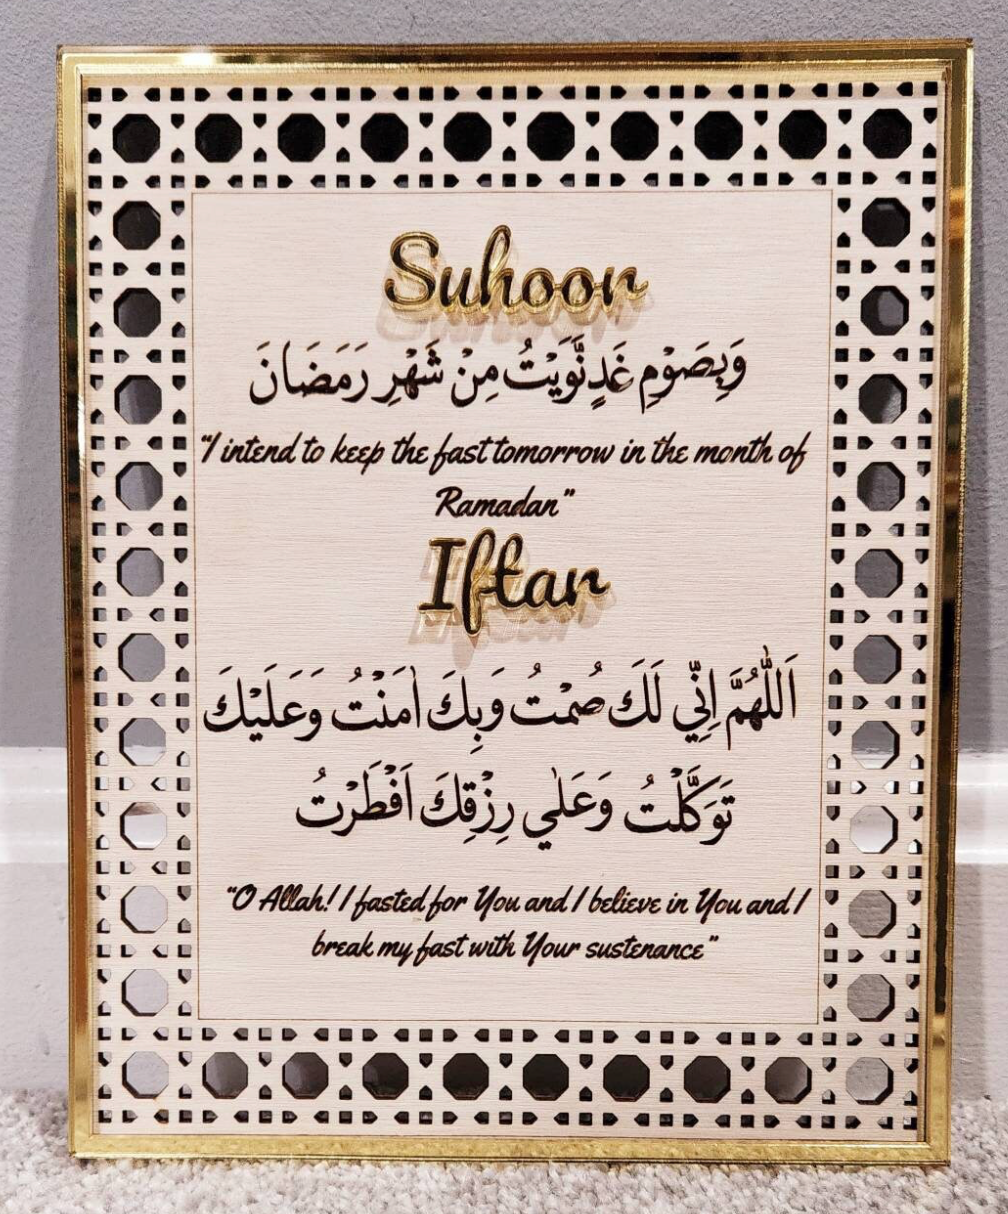 Suhoor
وَبِصَوْمِ غَدٍ نَّوَيْتُ مِنْ شَهْرِ رَمَضَانَ
"I intend to keep the fast tomorrow in the month of
Ramadan"
Iftar
اَللّٰهُمَّ اِنِّي لَكَ صُمْتُ وَبِكَ اٰمَنْتُ وَعَلَيْكَ
تَوَكَّلْتُ وَعَلٰي رِزْقِكَ اَفْطَرْتُ
"O Allah! I fasted for You and I believe in You and I
break my fast with Your sustenance"